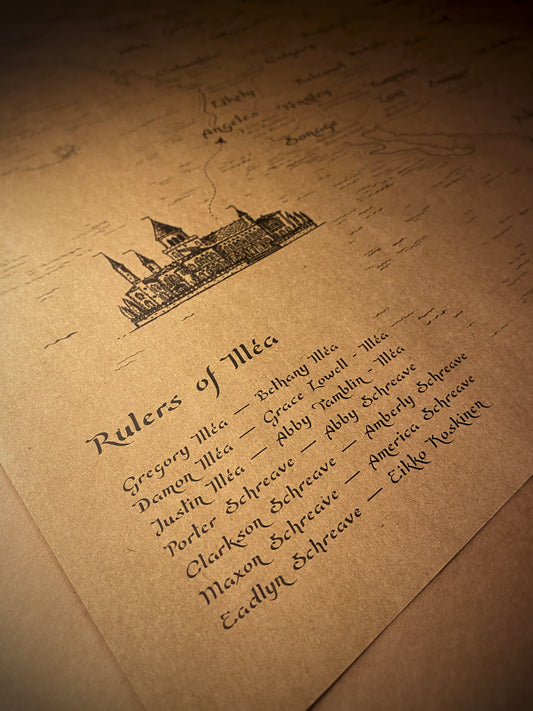 Likely
Angeles
Sonage
Rulers of Méa
Gregory Méa — Bethany Méa
Damon Méa — Grace Lowell - Méa
Justin Méa — Abby Tamblin - Méa
Porter Schreave — Abby Schreave
Clarkson Schreave — Amberly Schreave
Maxon Schreave — America Schreave
Eadlyn Schreave — Eikko Koskinen